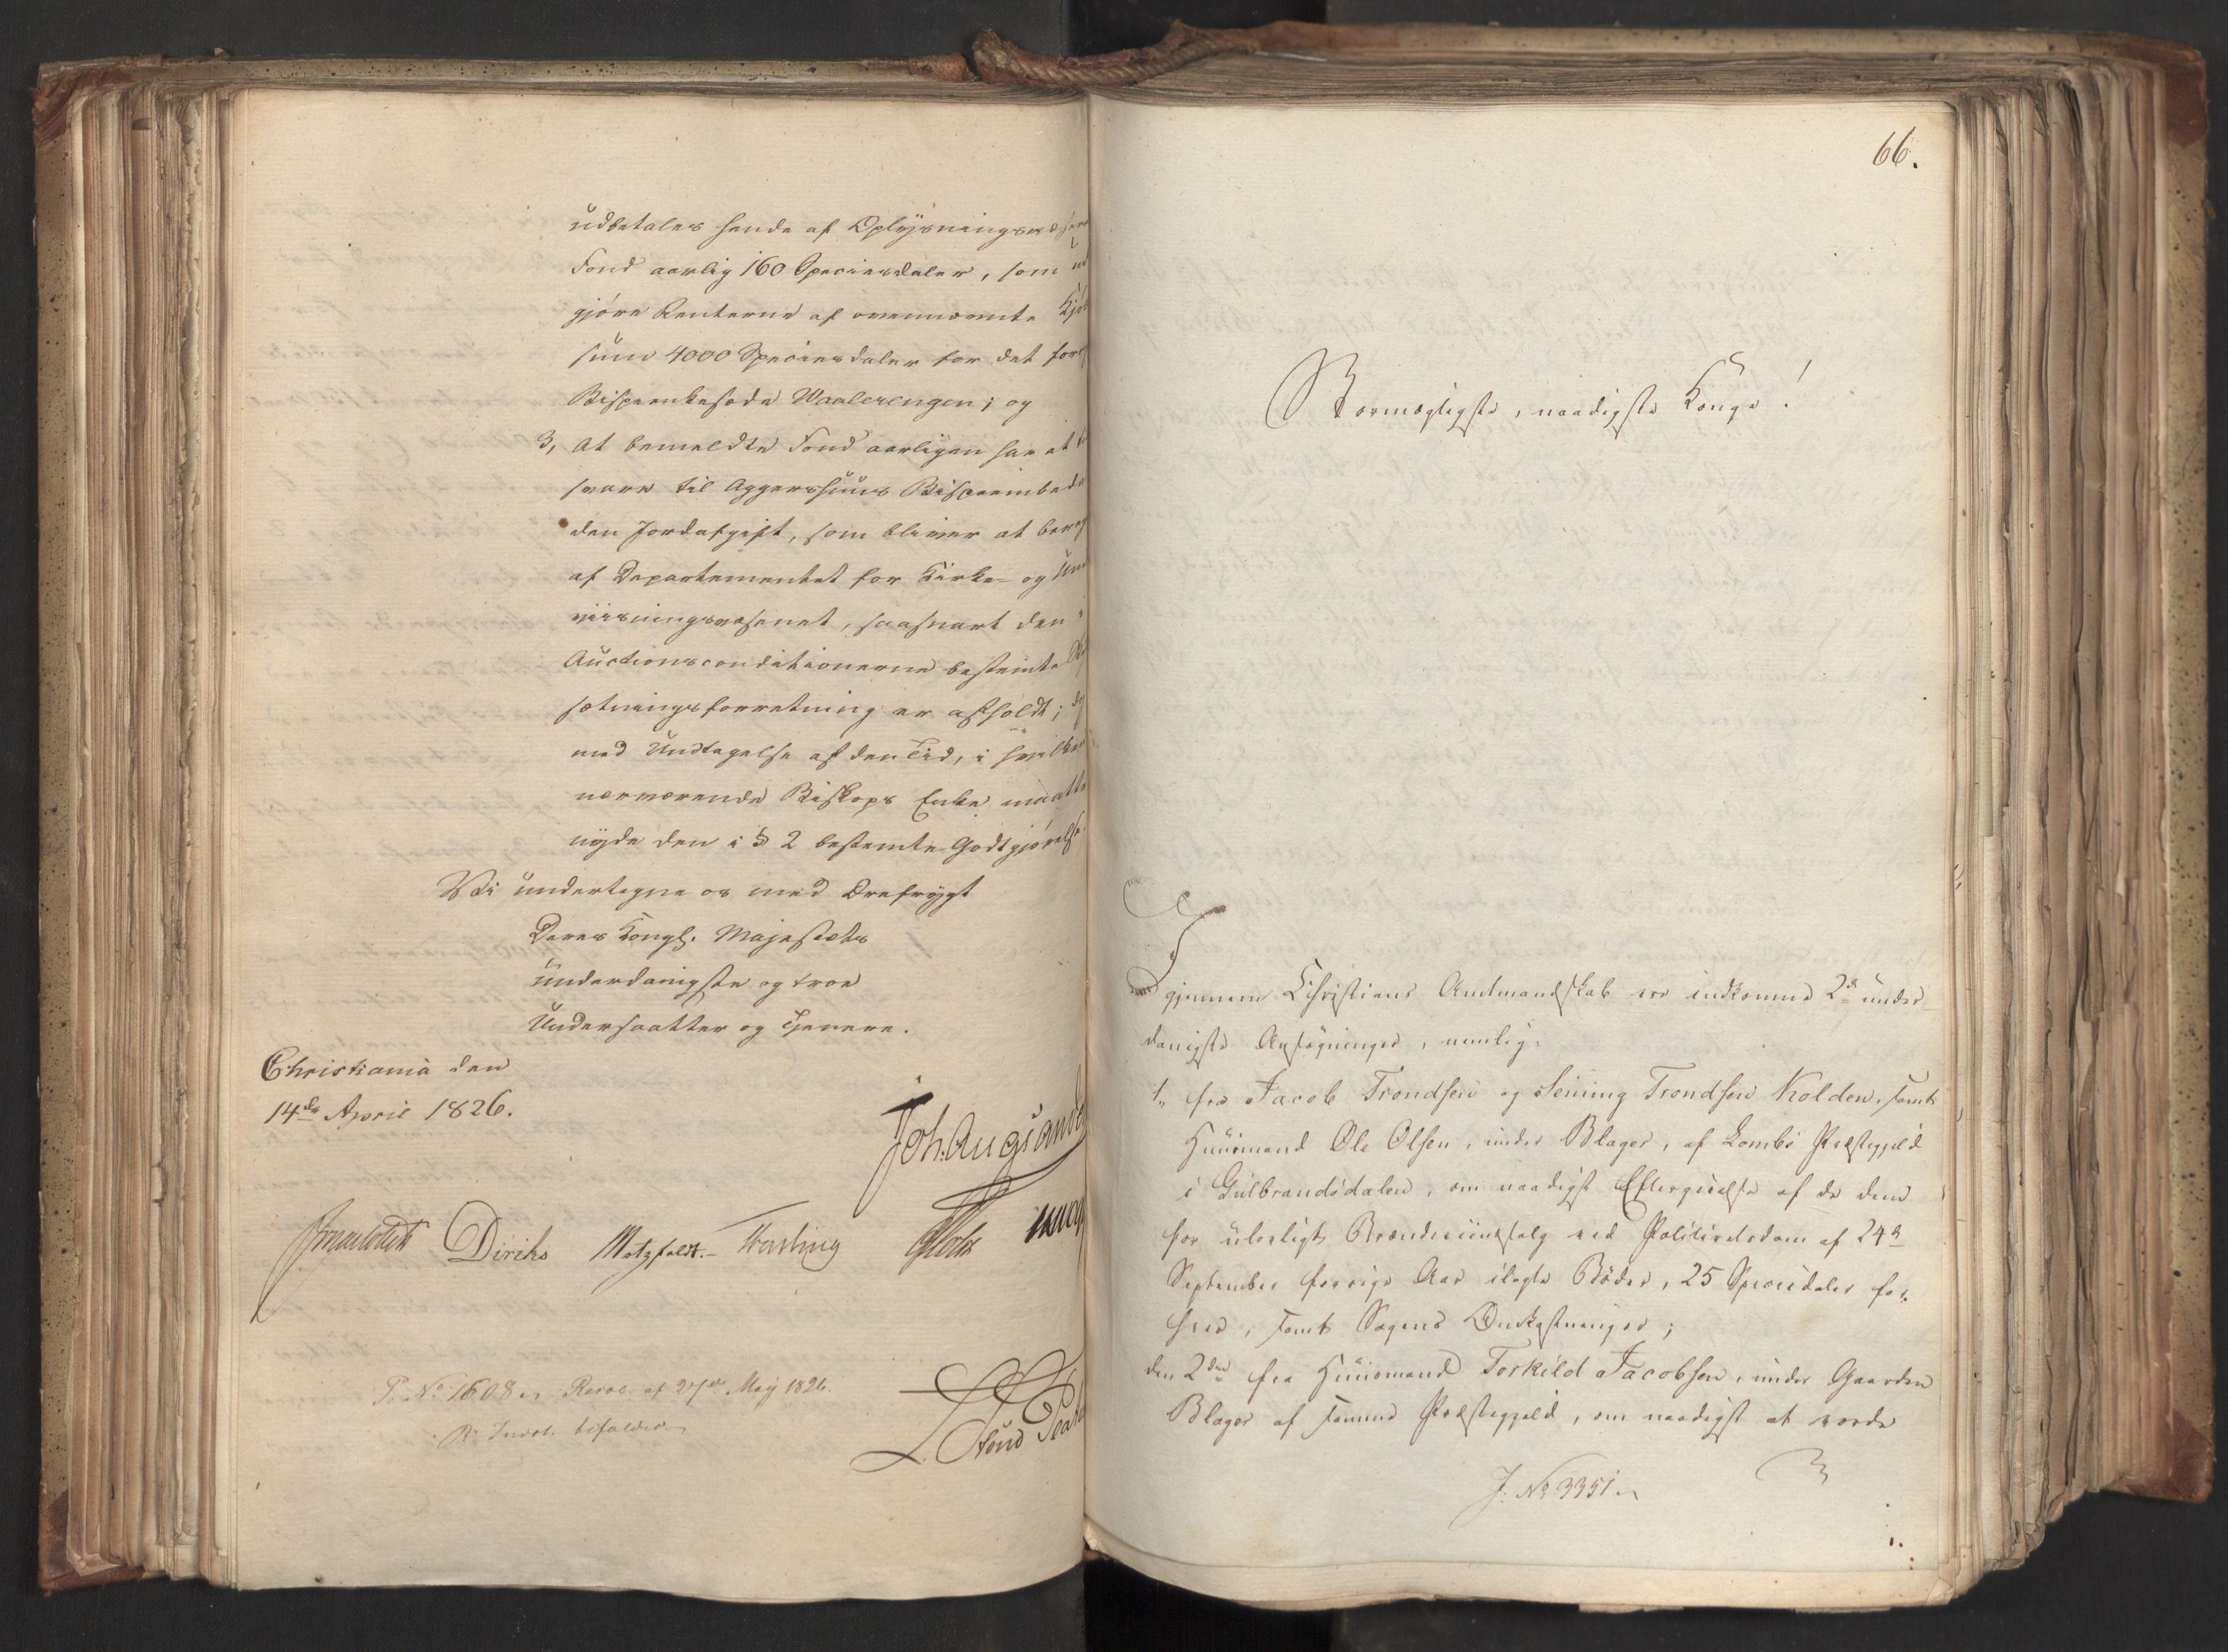 udbetales hende af Oplysningsvæsenets
Fond aarlig 160 Speciesdaler, som ud
gjøre Renterne af ovennævnte Kjøbe
sum 4000 Speciesdaler for det forrige
Bispeenkesæde Waalerengen; og
3, At bemeldte Fond aarligen har at
svare til Aggershuus Bispeembede
den Jordafgift, som bliver at bereg
af Departementet for Kirke- og Under
viisningsvæsenet, saasnart den i
Auctionsconditionerne bestemte
sætningsforretning er afholdt; dog
med Undtagelse af den Tid, i hvilken
nærværende Biskops Enke maatte
nyde den i § 2 bestemte Godtgjørelse.
Vi undertegne os med Ærefrygt
Deres Kongl. Majestæts
underdanigste og troe
Undersaatter og Tjenere.
Christiania den
14de April 1826.
Joh. Aug. Sande
Diriks Motzfeldt. Fasting
P. No 1608 Resol. af 27de May 1826.
R. Indst. bifaldes
66.
Stormægtigste, naadigste Konge!
Igjennem Christians Amtmandskab ere indkomne 2de under-
danigste Ansøgninger, nemlig:
1, fra Jacob Trondsen og Seming Trondsen Kolden, samt
Huusmand Ole Olsen, under Blager, af Lomb's Præstegjeld
i Gulbrandsdalen, om naadigst Eftergivelse af de dem
for ulovligt Brændeviinssalg ved Politieretsdom af 24de
September forrige Aar ilagte Bøder, 25 Speciedaler for
hver, samt Sagens Omkostninger;
den 2den fra Huusmand Torkild Jacobsen, under Gaarden
Blager af samme Præstegjeld, om naadigst at vorde
J. No 3351